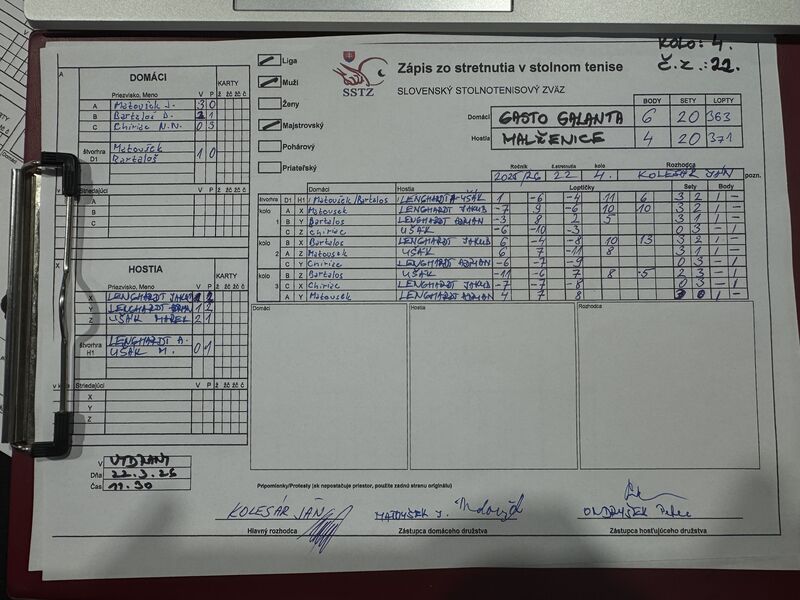 KOLO: 4.
Č.Z.: 22.
A
DOMÁCI
Priezvisko, Meno V P KARTY
ž žč žč č
A Matoušek J. 3 0
B Bartaloš D. 2 1
C Chiriec N.N. 0 3
štvorhra D1 Matoušek Bartaloš 1 0
Striedajúci
A
B
C
HOSTIA
Priezvisko, Meno V P KARTY
ž žč žč č
X LENGHARDT JAKUB 1 2
Y LENGHARDT ADRIAN 1 2
Z UŠÁK MAREK 2 1
štvorhra H1 LENGHARDT A. UŠÁK M. 0 1
v kole Striedajúci
X
Y
Z
V VYDRANY
Dňa 22.3.26
Čas 11.30
Liga
Muži
Ženy
Majstrovský
Pohárový
Priateľský
SSTZ
Zápis zo stretnutia v stolnom tenise
SLOVENSKÝ STOLNOTENISOVÝ ZVÄZ
BODY SETY LOPTY
Domáci GASTO GALANTA 6 20 363
Hostia MALŽENICE 4 20 371
Ročník č.stretnutia kolo Rozhodca
2025/26 22 4. KOLESÁR JÁN pozn.
Domáci Hostia Loptičky Sety Body
štvorhra D1 H1 Matoušek/Bartalos LENGHARDT A-UŠÁK 1 -6 -4 11 6 3 2 1 -
kolo A X Matousek LENGHARDT JAKUB -7 9 -6 10 10 3 2 1 -
1 B Y Bartalos LENGHARDT ADRIAN -3 8 2 5 3 1 1 -
C Z Chiriec UŠÁK -6 -10 -3 0 3 - 1
kolo B X Bartalos LENGHARDT JAKUB 6 -4 -8 10 13 3 2 1 -
2 A Z Matousek UŠÁK 6 7 -11 8 3 1 1 -
C Y Chiriec LENGHARDT ADRIAN -6 -7 -9 0 3 - 1
kolo B Z Bartalos UŠÁK -11 -6 7 8 -5 2 3 - 1
3 C X Chiriec LENGHARDT JAKUB -7 -7 -8 0 3 - 1
A Y Matousek LENGHARDT ADRIAN 4 7 8 3 0 1 -
Domáci Hostia Rozhodca
Pripomienky/Protesty (ak nepostačuje priestor, použite zadnú stranu originálu)
KOLESÁR JÁN MATOUŠEK J. ONDRUŠEK Peter
Hlavný rozhodca Zástupca domáceho družstva Zástupca hosťujúceho družstva